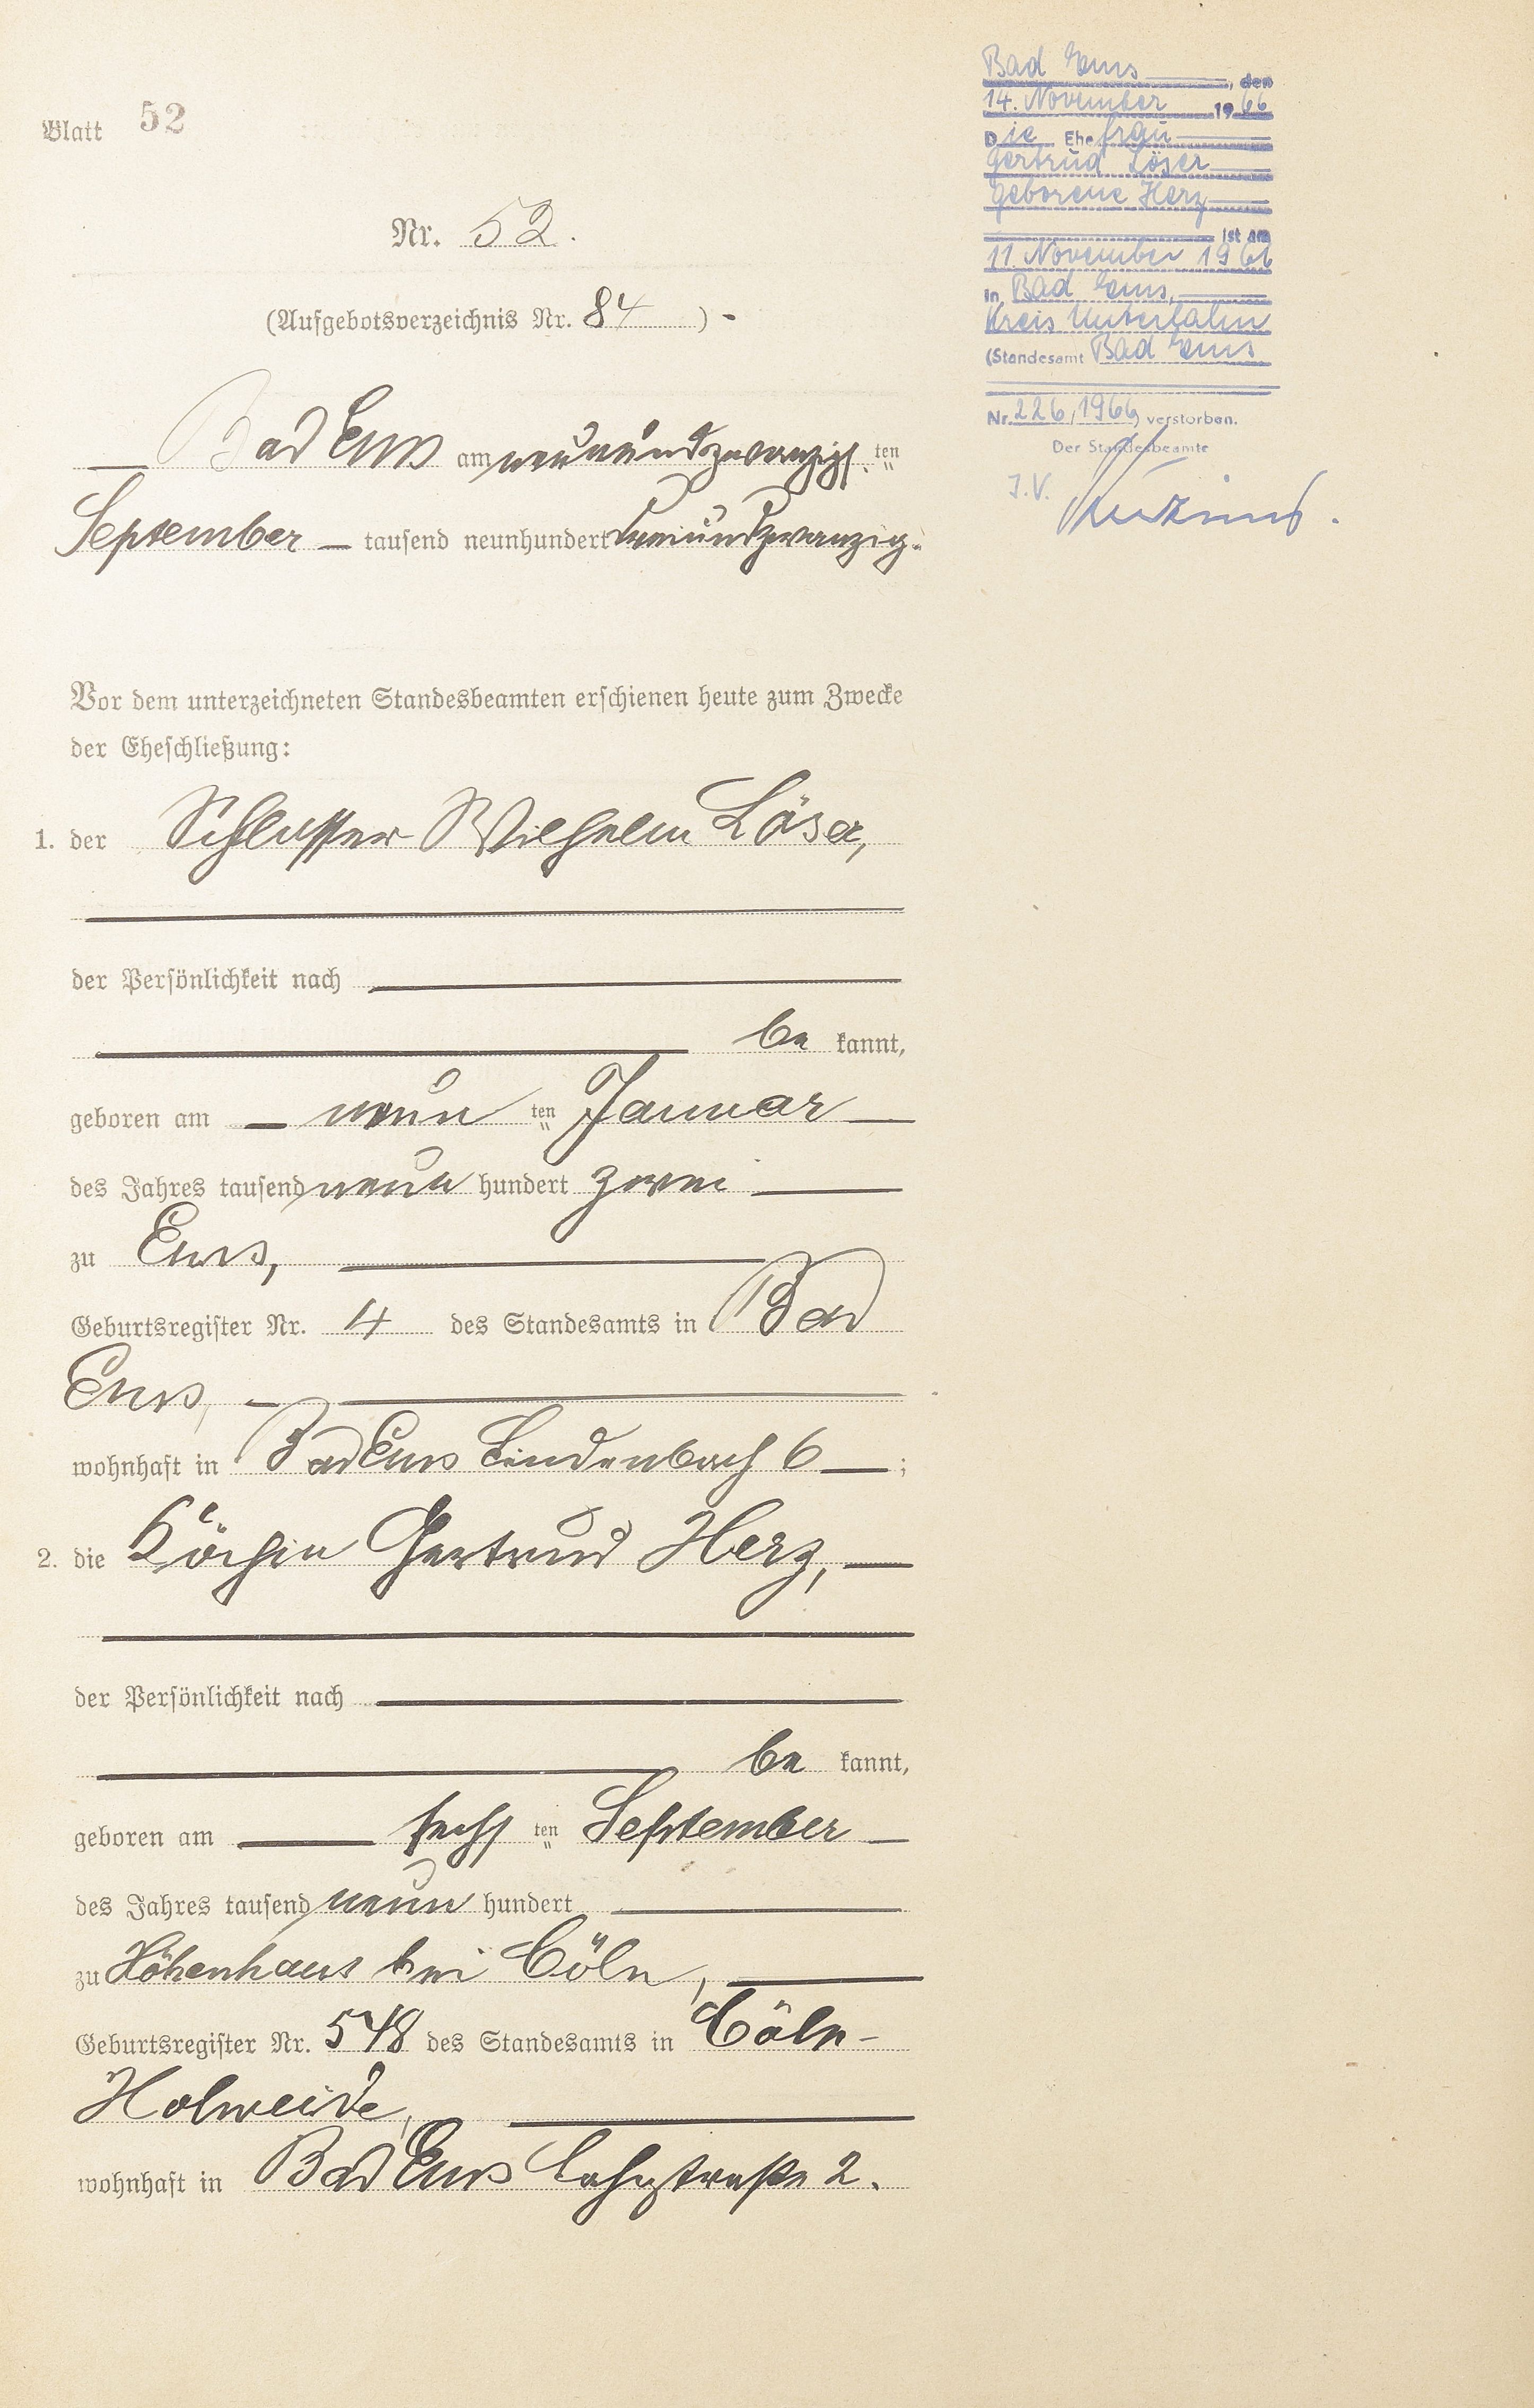 Blatt 52
Nr. 52.
(Aufgebotsverzeichnis Nr. 84 ) -
Bad Ems am neunundzwanzigsten
September tausend neunhundert dreiundzwanzig.
Vor dem unterzeichneten Standesbeamten erschienen heute zum Zwecke
der Eheschließung:
1. der Schlosser Wilhelm Löser,
der Persönlichkeit nach
be kannt,
geboren am neun ten Januar
des Jahres tausend neun hundert zwei
zu Ems,
Geburtsregister Nr. 4 des Standesamts in Bad
Ems,
wohnhaft in Bad Ems Lindenbach 6 ;
2. die Köchin Gertrud Herz,
der Persönlichkeit nach
be kannt,
geboren am sechs ten September
des Jahres tausend neun hundert
zu Höhenhaus bei Cöln,
Geburtsregister Nr. 548 des Standesamts in Cöln-
Holweide,
wohnhaft in Bad Ems Lahnstraße 2.
Bad Ems, den
14. November 1966
Die Ehefrau
Gertrud Löser
geborene Herz
ist am
11. November 1966
in Bad Ems,
Kreis Unterlahn
(Standesamt Bad Ems
Nr. 226/1966) verstorben.
Der Standesbeamte
J.V.